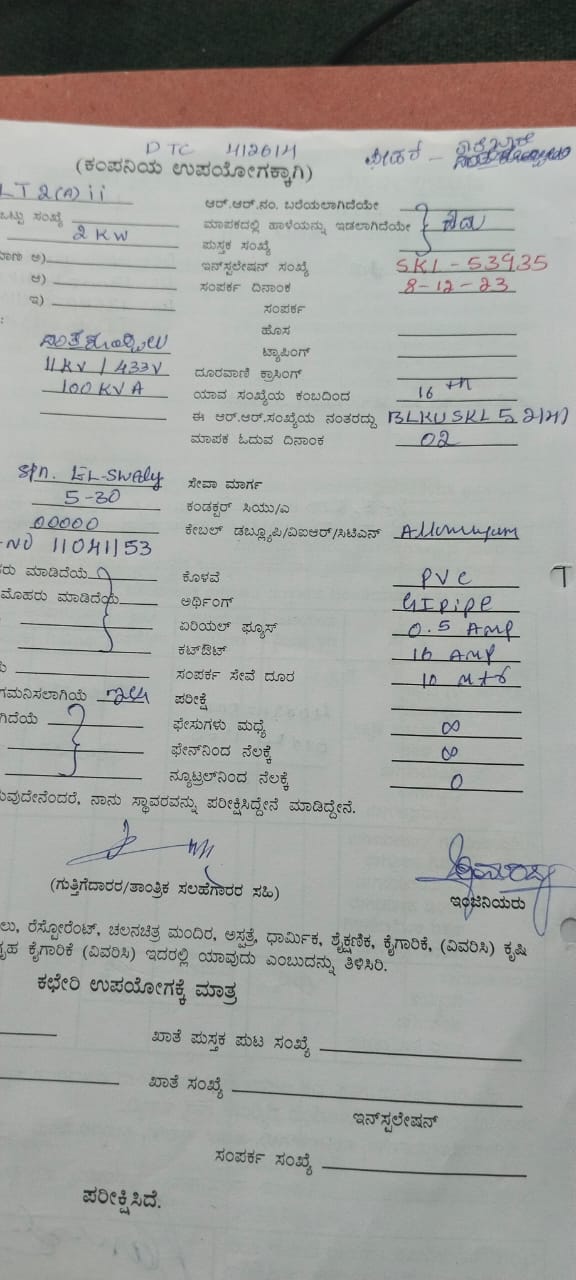 DTC 412614
(ಕಂಪನಿಯ ಉಪಯೋಗಕ್ಕಾಗಿ)
LT 2(A) ii ಆರ್.ಆರ್.ನಂ. ಬರೆಯಲಾಗಿದೆಯೇ
ಒಟ್ಟು ಸಂಖ್ಯೆ ಮಾಪಕದಲ್ಲಿ ಹಾಳೆಯನ್ನು ಇಡಲಾಗಿದೆಯೇ
2 KW ಪುಸ್ತಕ ಸಂಖ್ಯೆ
ಅ) ಇನ್‌ಸ್ಟಲೇಷನ್ ಸಂಖ್ಯೆ SKL-53935
ಆ) ಸಂಪರ್ಕ ದಿನಾಂಕ 8-12-23
ಇ) ಸಂಪರ್ಕ
ಹೊಸ
ಟ್ಯಾಪಿಂಗ್
11KV / 433V ದೂರವಾಣಿ ಕ್ರಾಸಿಂಗ್
100 KVA ಯಾವ ಸಂಖ್ಯೆಯ ಕಂಬದಿಂದ 16 th
ಈ ಆರ್.ಆರ್.ಸಂಖ್ಯೆಯ ನಂತರದ್ದು
ಮಾಪಕ ಓದುವ ದಿನಾಂಕ 02
ಸೇವಾ ಮಾರ್ಗ
5-30 ಕಂಡಕ್ಟರ್ ಸಿಯು/ಎ
00000 ಕೇಬಲ್ ಡಬ್ಲ್ಯೂಪಿ/ವಿಐಆರ್/ಸಿಟಿಎನ್
NO 11041153
ಮಾಡಿದೆಯೆ ಕೊಳವೆ PVC
ಮೊಹರು ಮಾಡಿದೆಯೆ ಅರ್ಥಿಂಗ್ GI pipe
ಏರಿಯಲ್ ಫ್ಯೂಸ್ 0.5 Amp
ಕಟ್‌ಔಟ್ 16 Amp
ಸಂಪರ್ಕ ಸೇವೆ ದೂರ 10 mtr
ಪರೀಕ್ಷೆ
ಫೇಸುಗಳು ಮಧ್ಯೆ ∞
ಫೇಸ್‌ನಿಂದ ನೆಲಕ್ಕೆ ∞
ನ್ಯೂಟ್ರಲ್‌ನಿಂದ ನೆಲಕ್ಕೆ 0
ನಾನು ಸ್ಥಾವರವನ್ನು ಪರೀಕ್ಷಿಸಿದ್ದೇನೆ ಮಾಡಿದ್ದೇನೆ.
(ಗುತ್ತಿಗೆದಾರರ/ತಾಂತ್ರಿಕ ಸಲಹೆಗಾರರ ಸಹಿ) ಇಂಜಿನಿಯರು
ರೆಸ್ಟೋರೆಂಟ್, ಚಲನಚಿತ್ರ ಮಂದಿರ, ಅಸ್ಪತ್ರೆ, ಧಾರ್ಮಿಕ, ಶೈಕ್ಷಣಿಕ, ಕೈಗಾರಿಕೆ, (ವಿವರಿಸಿ) ಕೃಷಿ
ಕೈಗಾರಿಕೆ (ವಿವರಿಸಿ) ಇದರಲ್ಲಿ ಯಾವುದು ಎಂಬುದನ್ನು ತಿಳಿಸಿರಿ.
ಕಛೇರಿ ಉಪಯೋಗಕ್ಕೆ ಮಾತ್ರ
ಖಾತೆ ಪುಸ್ತಕ ಪುಟ ಸಂಖ್ಯೆ
ಖಾತೆ ಸಂಖ್ಯೆ
ಇನ್‌ಸ್ಟಲೇಷನ್
ಸಂಪರ್ಕ ಸಂಖ್ಯೆ
ಪರೀಕ್ಷಿಸಿದೆ.